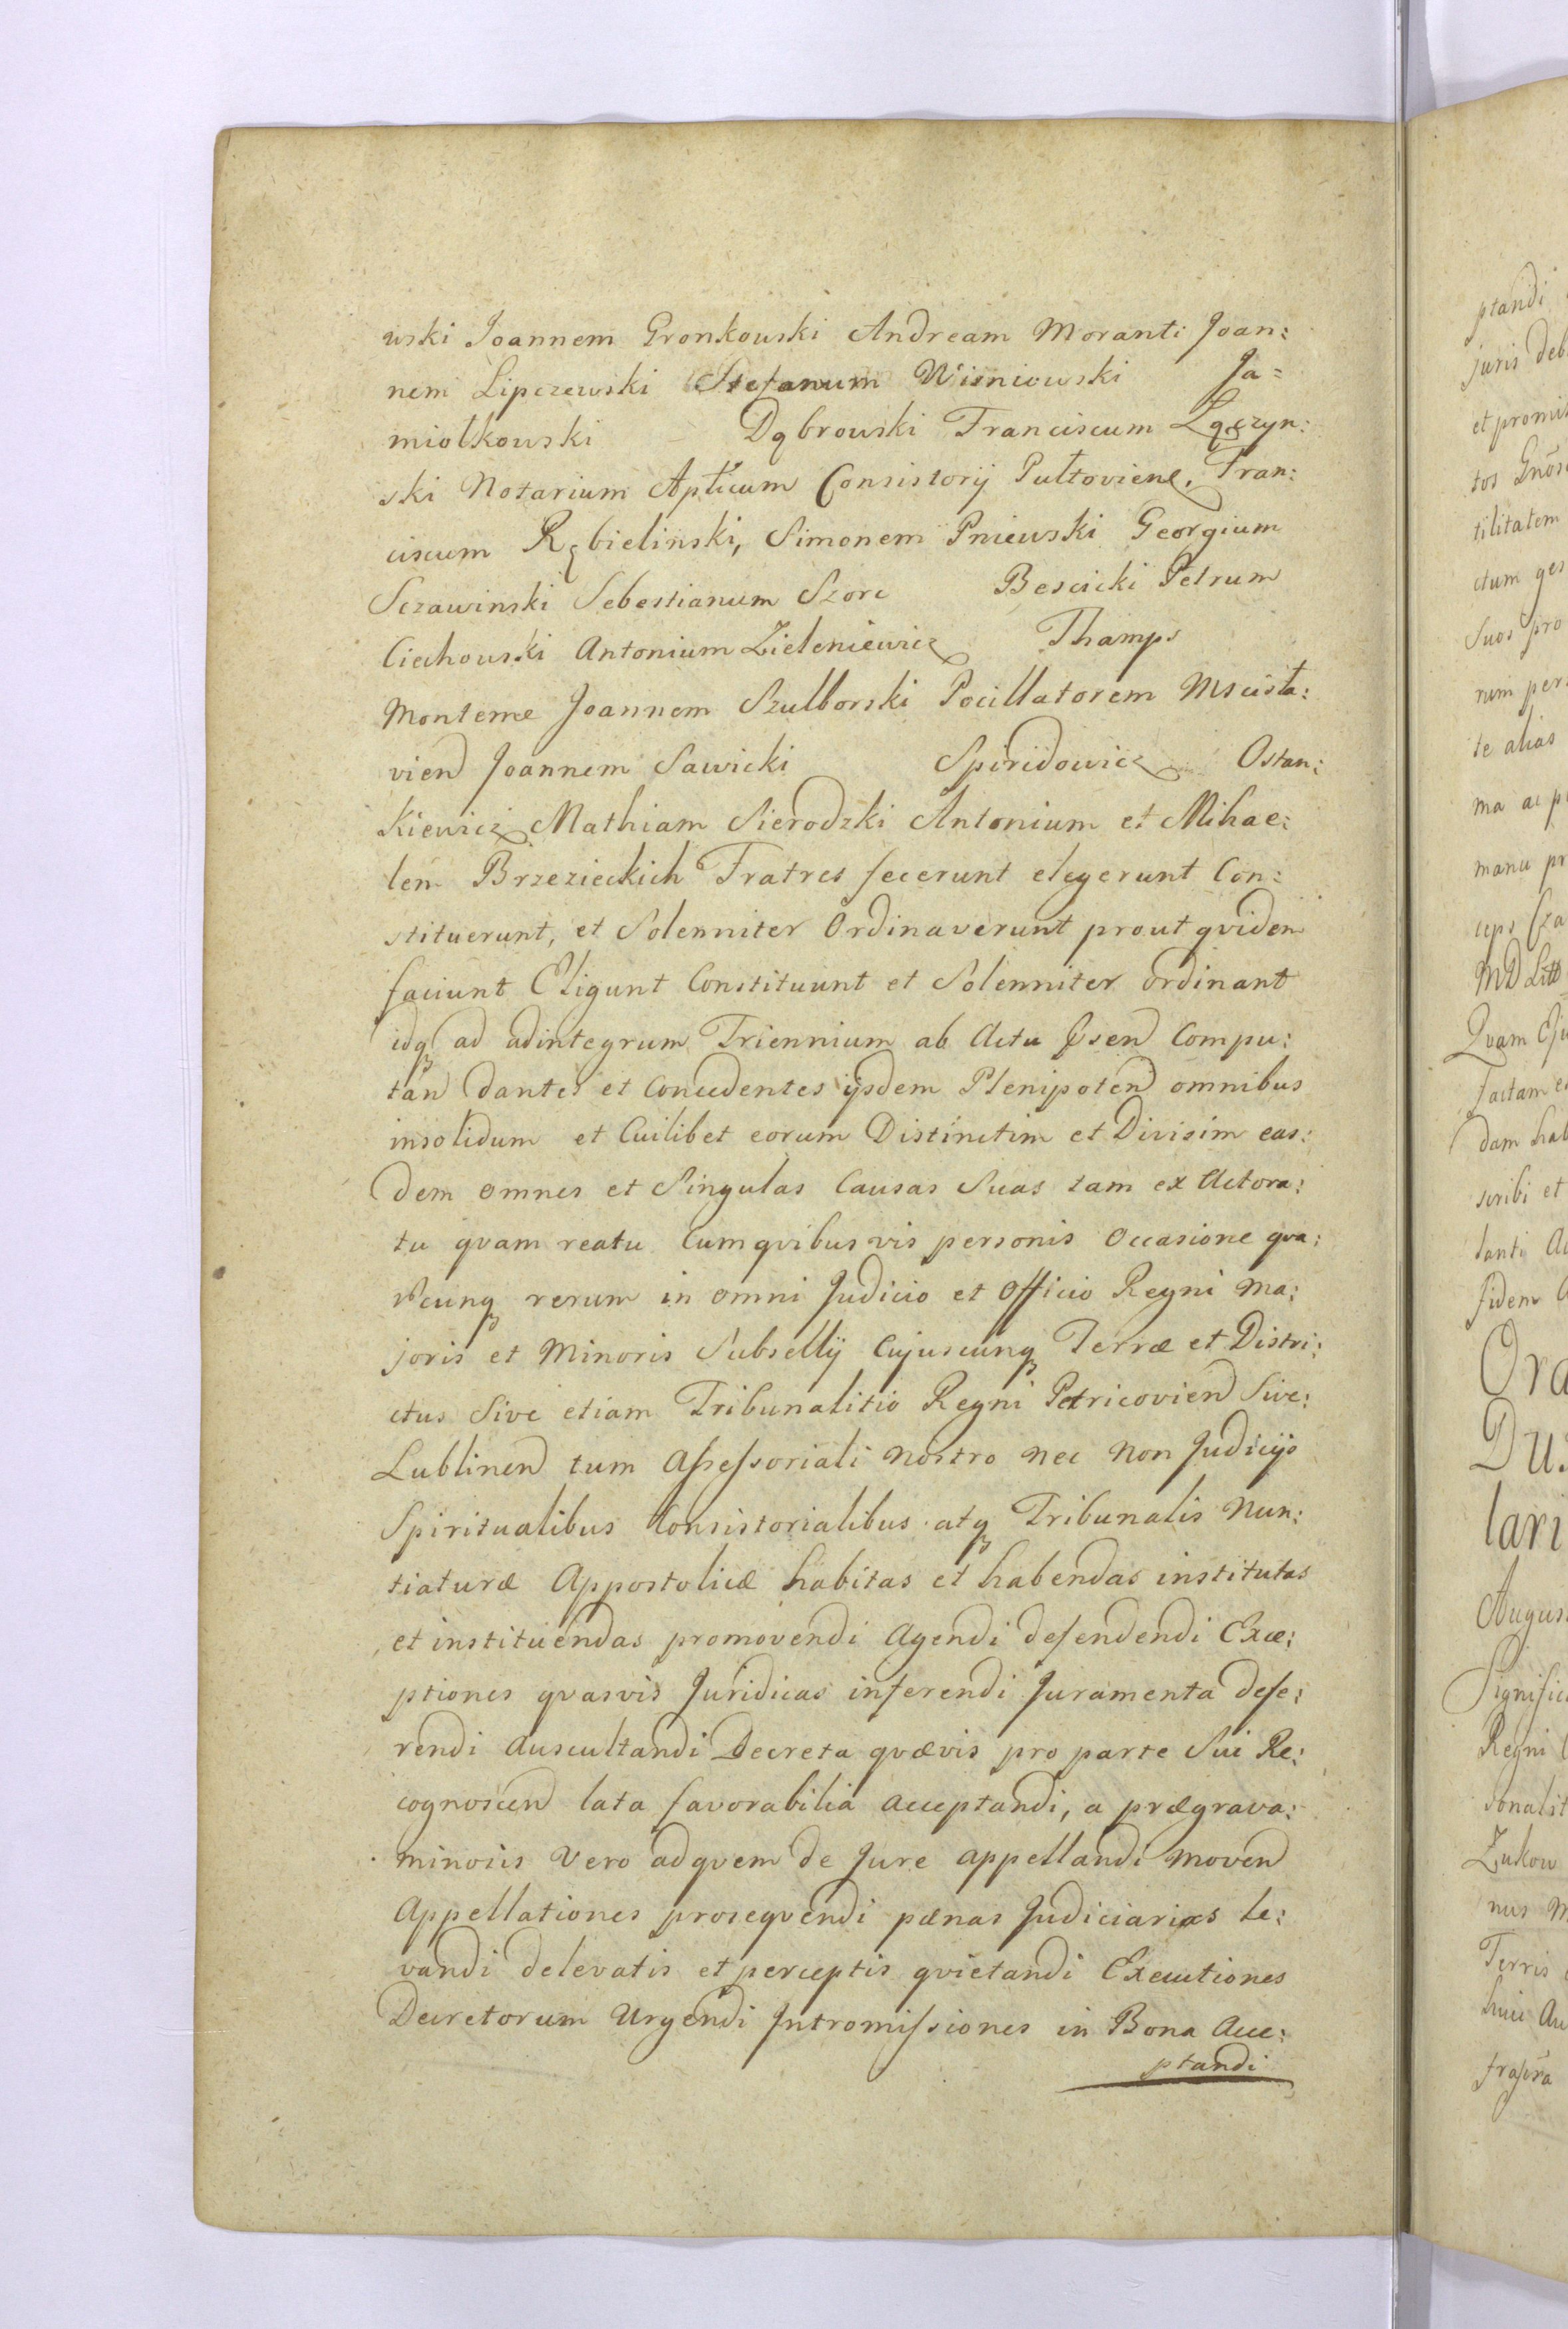 wski Joannem Gronkowski Andream Moranti Joan:
nem Lipczewski Stefanum Wisniowski Ja=
miołkowski Dąbrowski Franciscum Łączyn:
ski Notarium Aplicum Consistorij Pułtoviene. Fran:
ciscum Rębielinski, Simonem Pniewski Georgium
Sczawinski Sebestianum Szorc Bescicki Petrum
Ciechowski Antonium Zieleniewicz Thamps
Monteme Joannem Szulborski Pocillatorem Mscisła:
vien Joannem Sawicki Spiridowicz Ostan:
kiewicz Mathiam Sierodzki Antonium et Mihae:
lem Brzezieckich Fratres fecerunt elegerunt Con:
stituerunt, et Solenniter Ordinaverunt prout qvidem
faciunt Eligunt Constituunt et Solenniter ordinant
idq ad adintegrum Triennium ab Actu Psen Compu:
tan dantes et Concedentes ijsdem Plenipoten omnibus
insolidum et Cuilibet eorum Distinctim et Divisim eas:
dem omnes et Singulas Causas Suas tam ex Actora:
tu qvam reatu Cumqvibusvis personis Occasione qva:
rvcunq rerum in omni Judicio et Officio Regni Ma:
joris et Minoris Subsellij Cujuscunq Terræ et Distri:
ctus Sive etiam Tribunalitio Regni Petricovien Sive:
Lublinen tum Assessoriali Nostro nec non Judicijs
Spiritualibus Consistorialibus atq Tribunalis Nun:
tiaturæ Appostolicæ habitas et habendas institutas
et instituendas promovendi Agendi defendendi Exce:
ptiones qvasvis Juridicas inferendi Juramenta defe:
rendi auscultandi Decreta qvævis pro parte Sui Re:
cognoscen lata favorabilia acceptandi, a prægrava:
minosis vero adqvem de Jure appellandi moven
Appellationes proseqvendi pænas Judiciarias le:
vandi delevatis et perceptis qvietandi Executiones
Decretorum Urgendi Intromissiones in Bona Acce:
ptandi